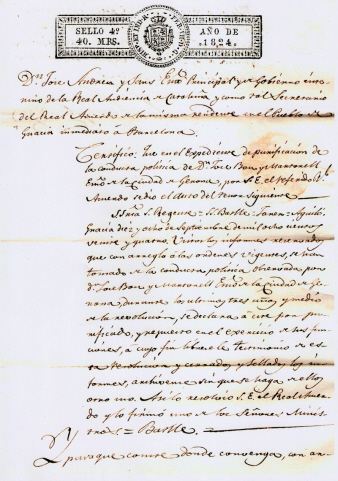 SELLO 4º AÑO DE
40. MRS. 1824.
Dn. Jose Andreu y Sans Eno. Principal y de Gobierno interino de la Real Audiencia de Cataluña y como tal Secretario
del Real Acuerdo de la misma residente en el Pueblo de
Gracia inmediato à Barcelona.
Certifico: que en el Expediente de purificacion de
la conducta politica de Dn. Jose Bou y Martorell
Eno. de la Ciudad de Gerona, por S. E. el referido Rl.
Acuerdo se dio el auto del tenor siguiente
S. Sria. S. Regente
Gracia diez y ocho de Septiembre de mil ocho cientos
veinte y quatro. Vistos los informes
que con arreglo à las ordenes vigentes, se han
tomado de la conducta politica observada por
Dn. Jose Bou y Martorell Eno. de la Ciudad de Ge-
rona, durante los ultimos tres años y medio
de la revolucion, se declara à este por pu-
rificado, y repuesto en el exercicio de sus fun-
ciones, à cuyo fin librese le testimonio de es-
ta resolucion y cerrados, y sellados los in-
formes, archivense sin que se haga de ellos
otro uso. Asi lo resolvio S. E. el Real Acuer-
do y lo firmó uno de los Señores Minis-
tros
Y paraque conste donde convenga, con ar-